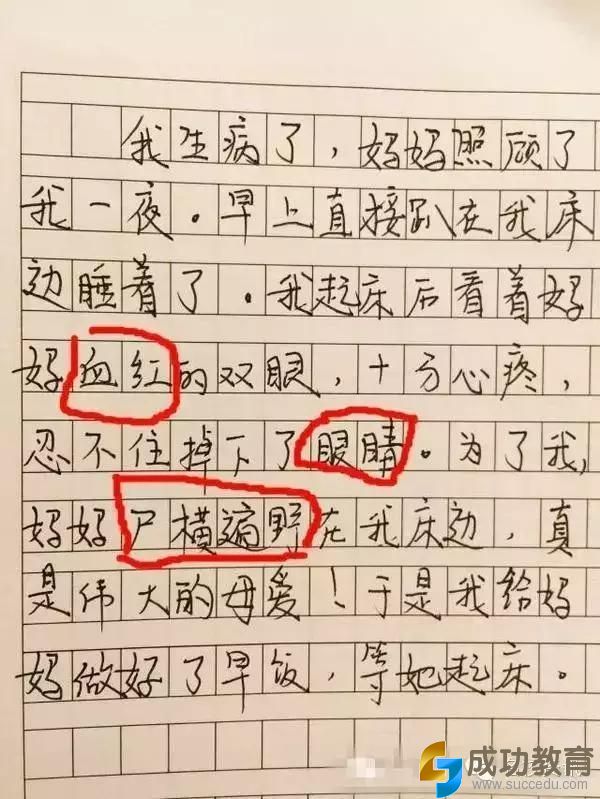 我生病了，妈妈照顾了
我一夜。早上直接趴在我床
边睡着了。我起床后看着好
好血红的双眼，十分心疼，
忍不住掉下了眼睛。为了我，
妈好尸横遍野在我床边，真
是伟大的母爱！于是我给妈
妈做好了早饭，等她起床。
成功教育
www.succedu.com